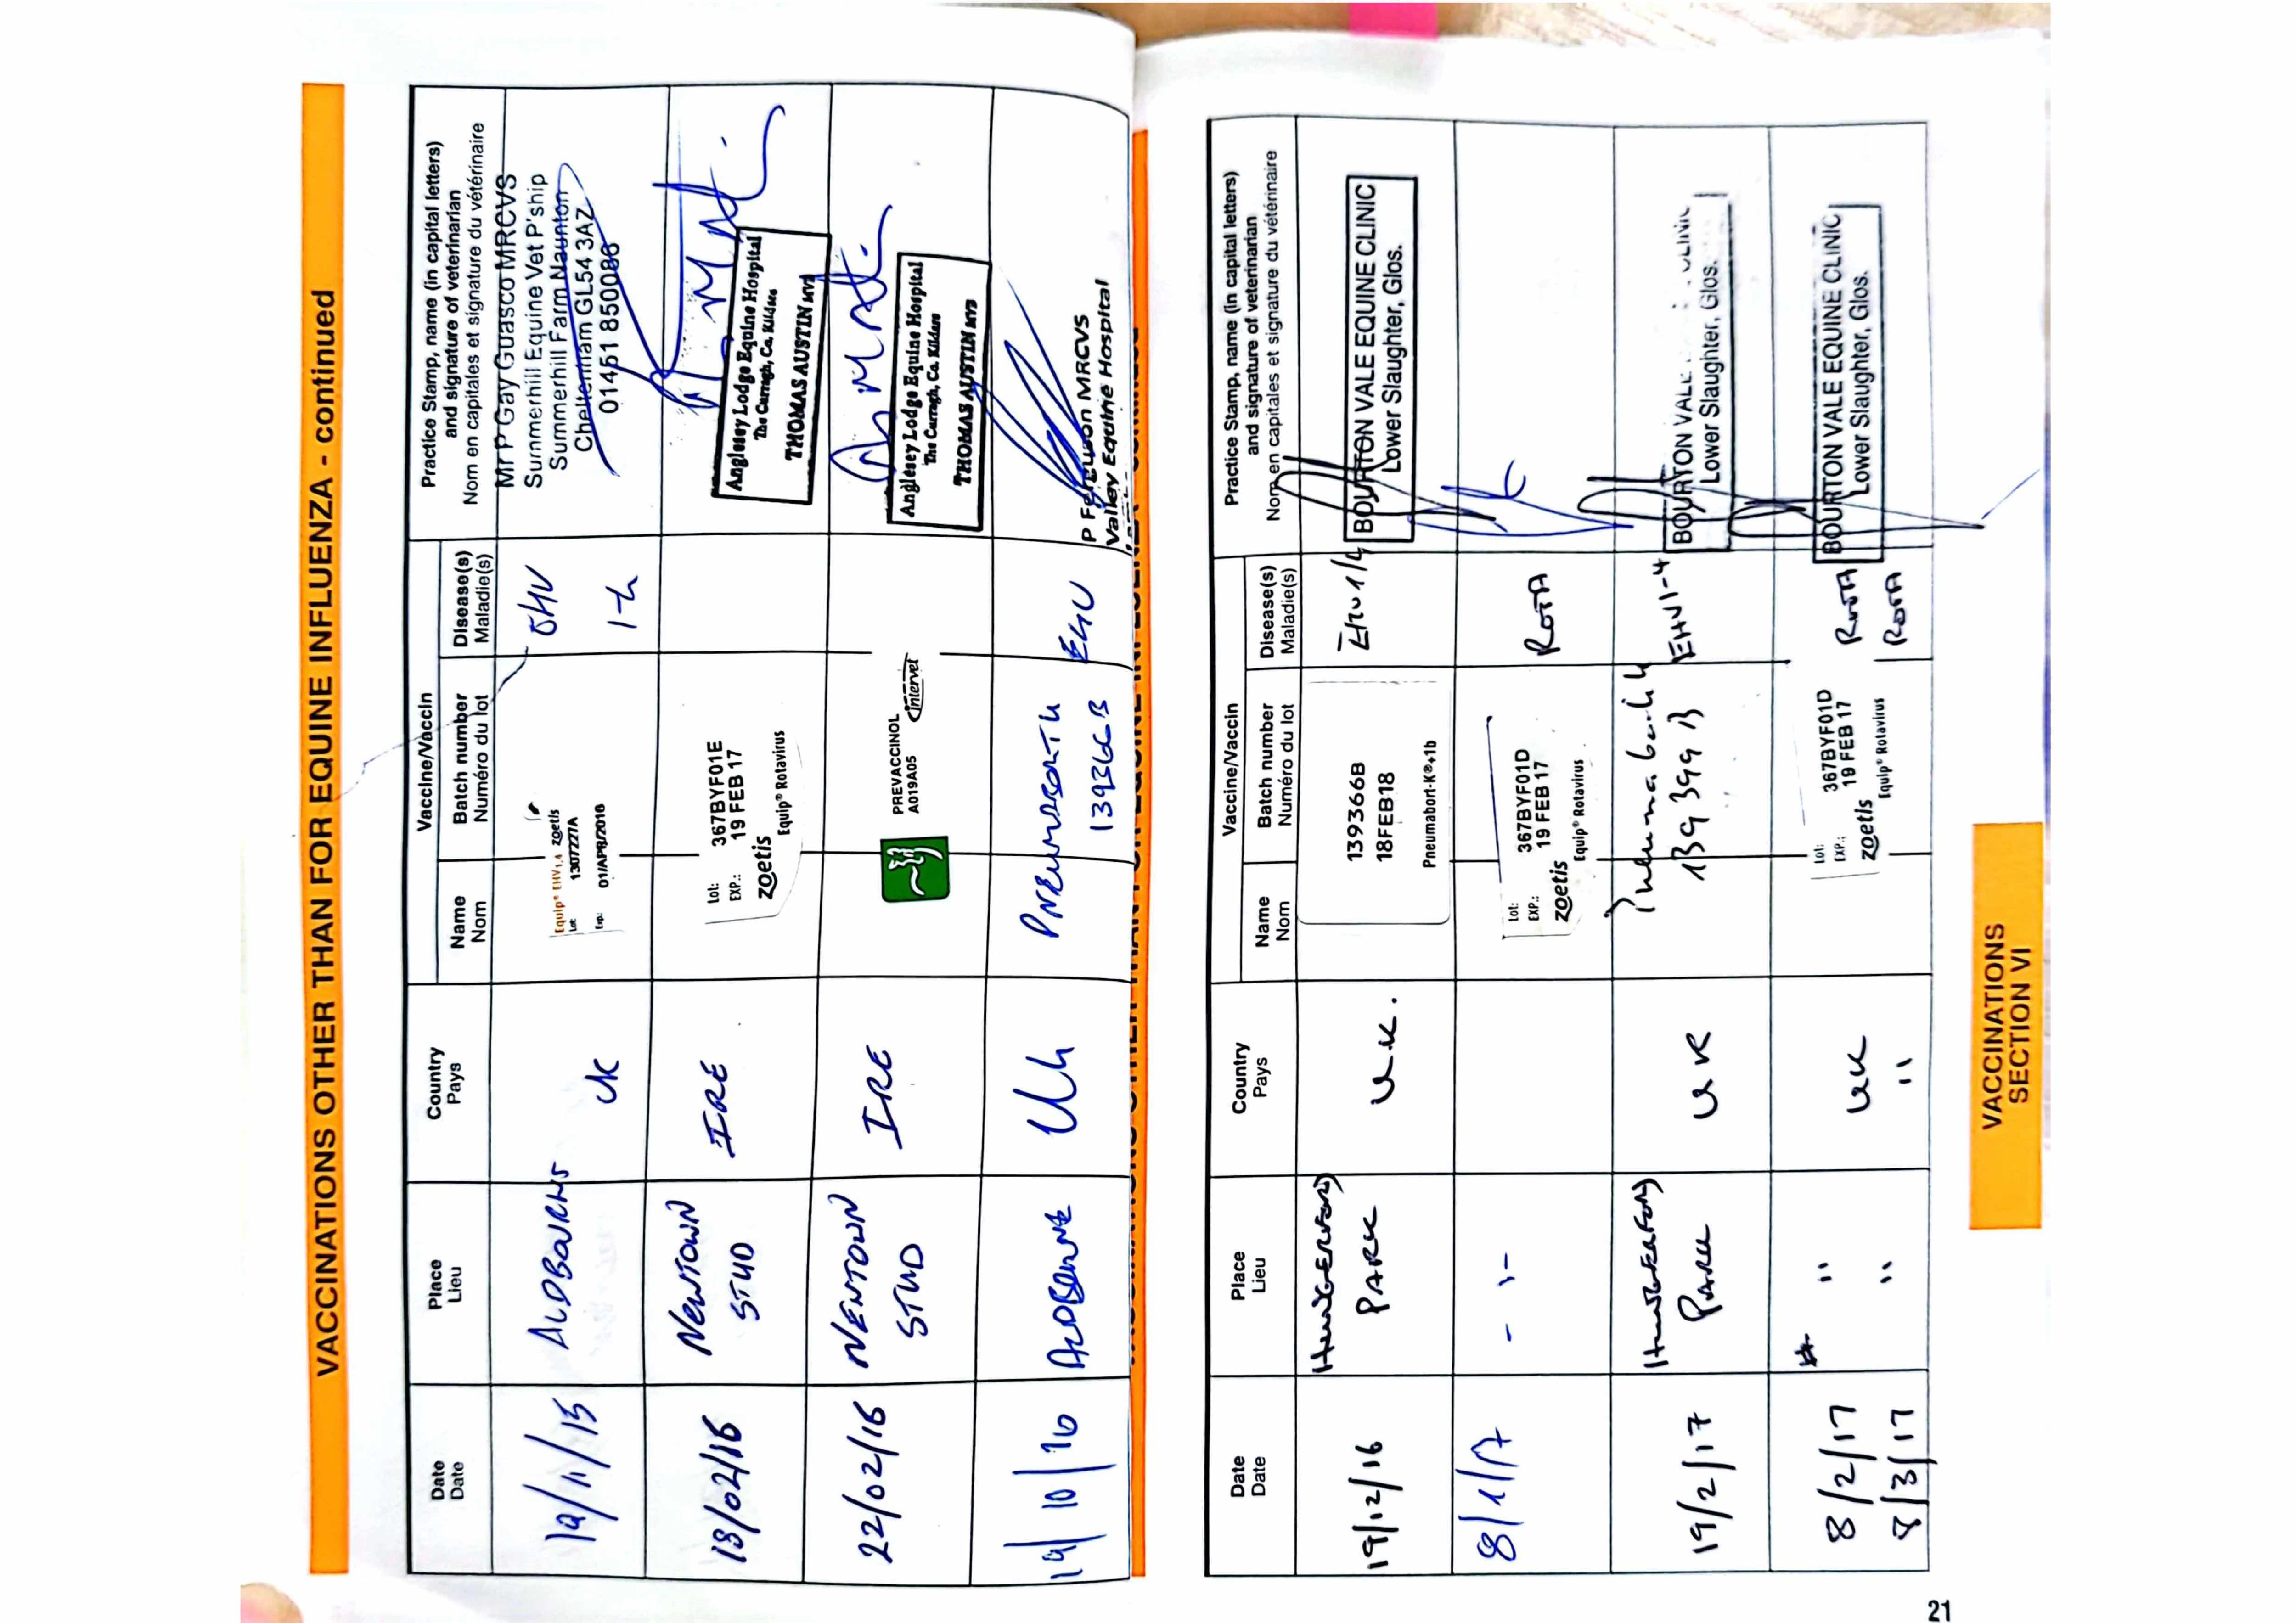 VACCINATIONS OTHER THAN FOR EQUINE INFLUENZA - continued
Date
Date
Place
Lieu
Country
Pays
Vaccine/Vaccin
Name
Nom
Batch number
Numéro du lot
Disease(s)
Maladie(s)
Practice Stamp, name (in capital letters)
and signature of veterinarian
Nom en capitales et signature du vétérinaire
19/11/15
ALDBOURNE
UK
Equip® EHV1,4 zoetis
Lot: 130727A
Exp: 01/APR/2016
EHV
1-4
Mr P Gay Guasco MRCVS
Summerhill Equine Vet P'ship
Summerhill Farm Naunton
Cheltenham GL54 3AZ
01451 850086
13/02/16
NEWTOWN
STUD
IRE
Lot: 367BYF01E
EXP.: 19 FEB 17
zoetis
Equip® Rotavirus
Anglesey Lodge Equine Hospital
The Curragh, Co. Kildare
THOMAS AUSTIN MVB
22/02/16
NEWTOWN
STUD
IRE
PREVACCINOL
A019A05
Intervet
Anglesey Lodge Equine Hospital
The Curragh, Co. Kildare
THOMAS AUSTIN MVB
19/10/16
ALDBOURNE
UK
139366B
EHV
P Ferguson MRCVS
Valley Equine Hospital
Date
Date
Place
Lieu
Country
Pays
Vaccine/Vaccin
Name
Nom
Batch number
Numéro du lot
Disease(s)
Maladie(s)
Practice Stamp, name (in capital letters)
and signature of veterinarian
Nom en capitales et signature du vétérinaire
19/12/16
HUNGERFORD
PARK
U.K.
139366B
18FEB18
Pneumabort-K®+1b
EHV1/4
BOURTON VALE EQUINE CLINIC
Lower Slaughter, Glos.
8/1/17
- " -
Lot: 367BYF01D
EXP.: 19 FEB 17
zoetis
Equip® Rotavirus
ROTA
19/2/17
HUNGERFORD
PARK
UK
139399B
EHV1-4
BOURTON VALE CLINIC
Lower Slaughter, Glos.
8/2/17
"
UK
Lot: 367BYF01D
EXP.: 19 FEB 17
zoetis
Equip® Rotavirus
ROTA
BOURTON VALE EQUINE CLINIC
Lower Slaughter, Glos.
8/3/17
"
"
ROTA
VACCINATIONS
SECTION VI
21